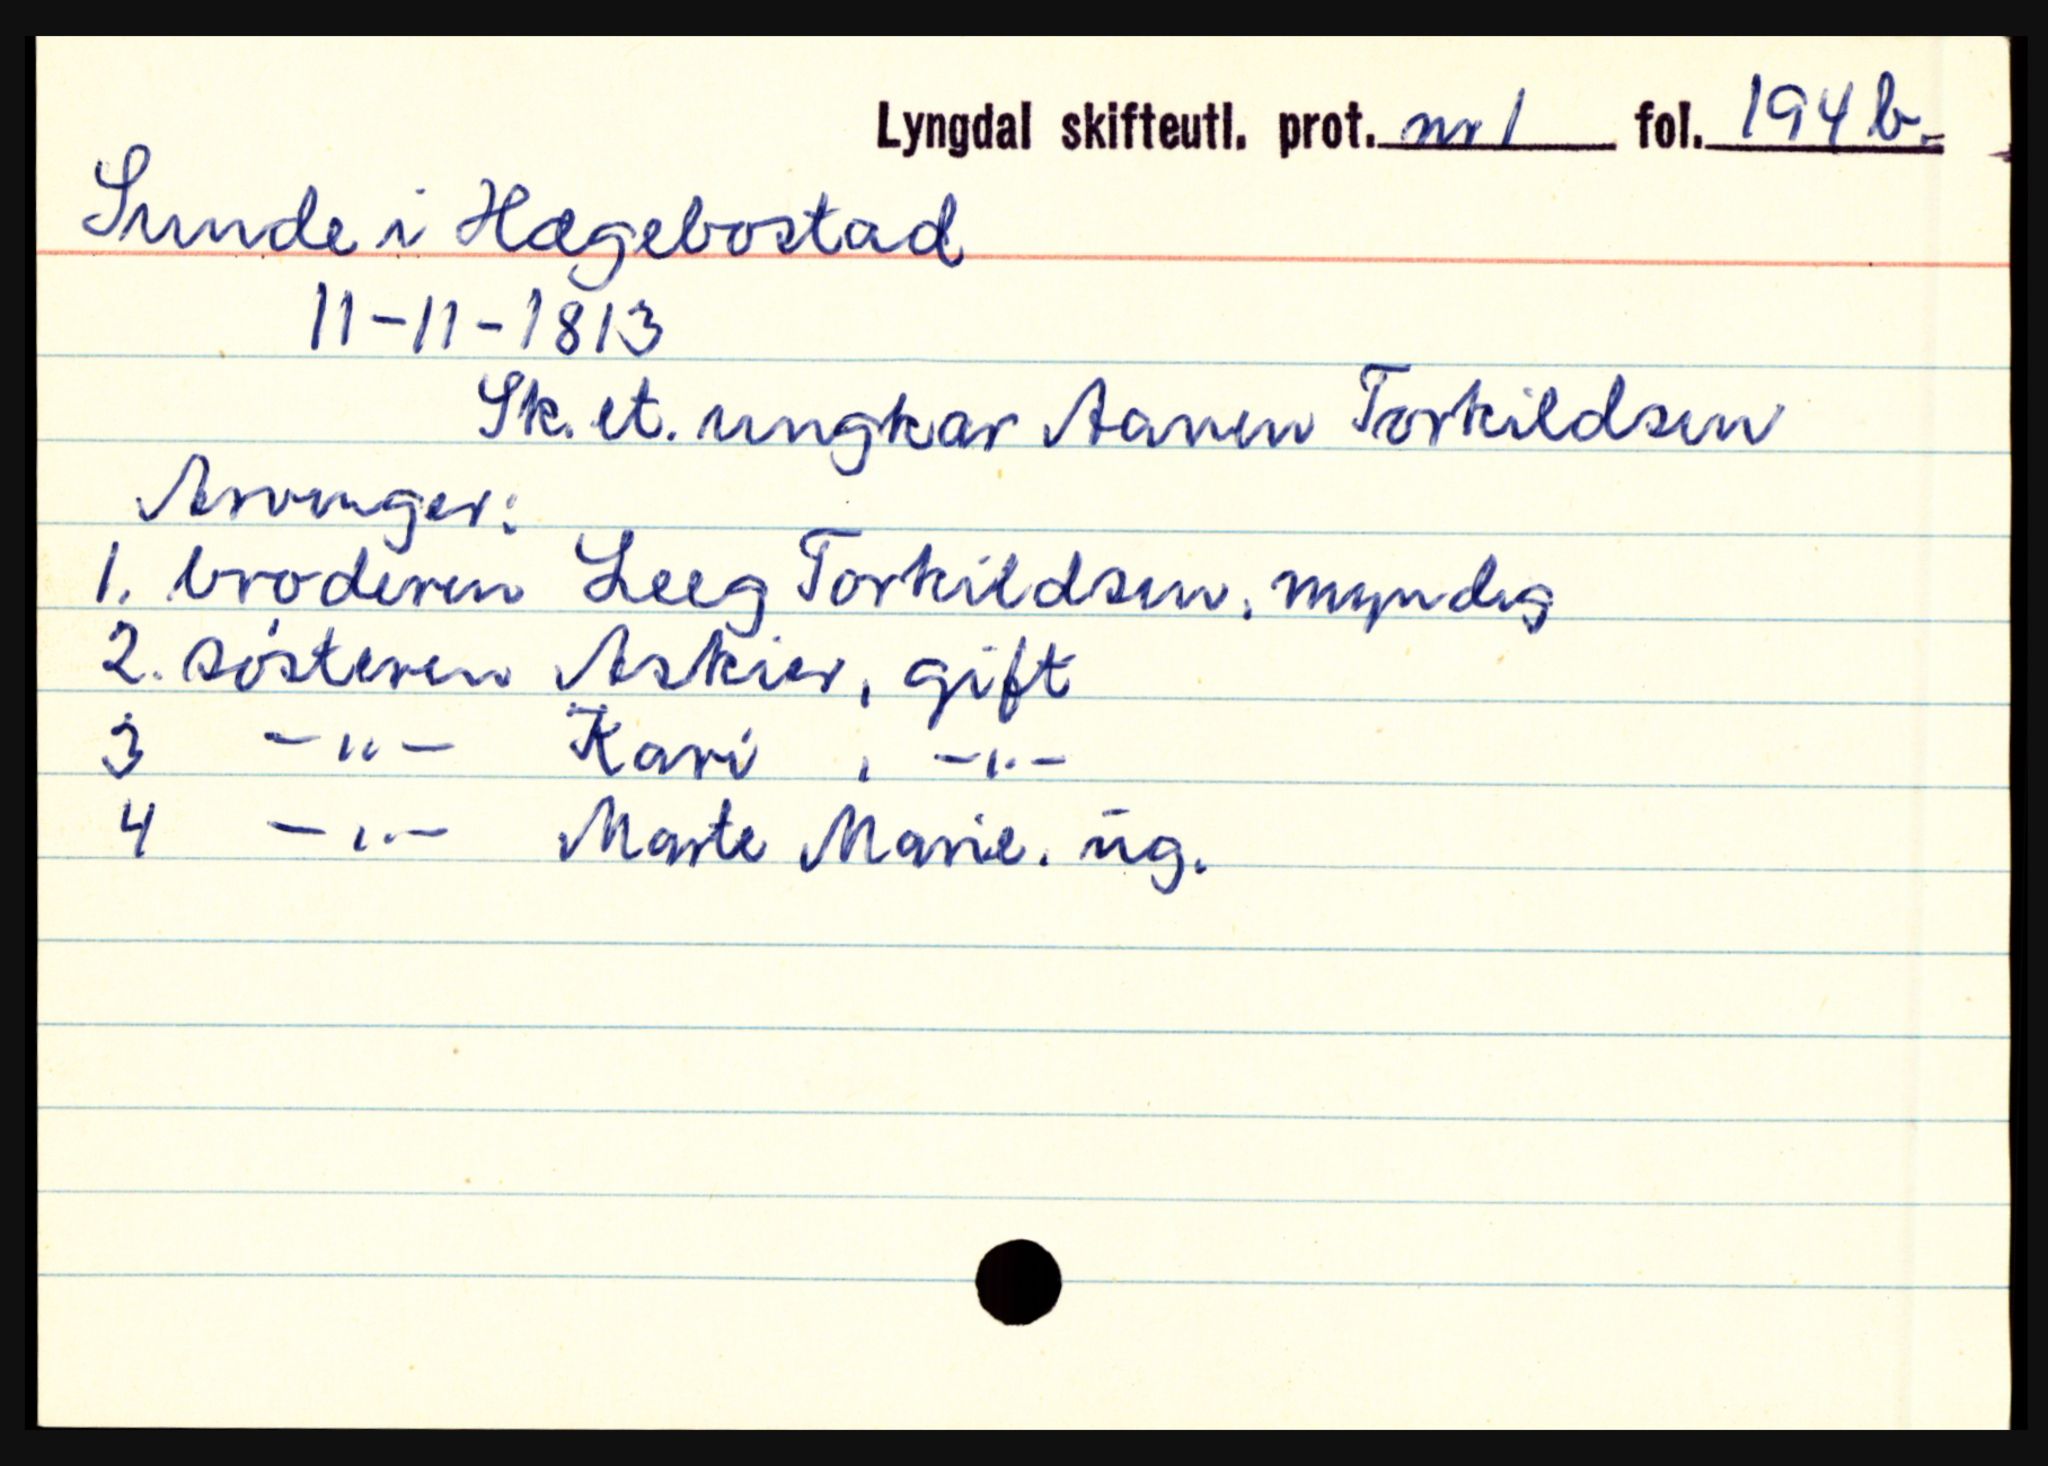 Lyngdal skifteutl. prot. nr 1 fol. 194 b.
Sunde i Hægebostad
11-11-1813
Sk. et. ungkar Aanen Torkildsen
Arvinger:
1. broderen Leeg Torkildsen, myndig
2. søsteren Askier, gift
3 -"- Kari , -"-
4 -"- Marte Marie. ug.